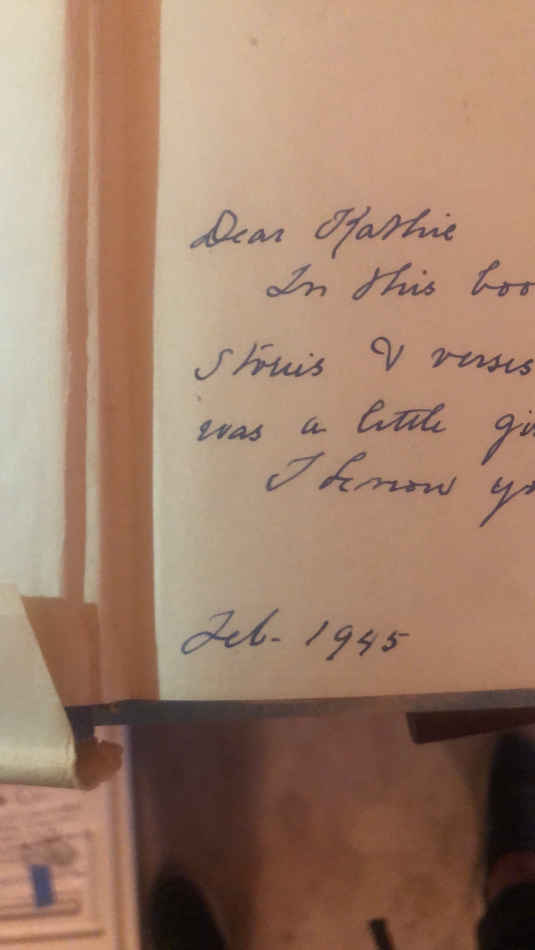 Dear Kathie
In this boo
Stories & verses
was a little gi
I know yo
Feb- 1945